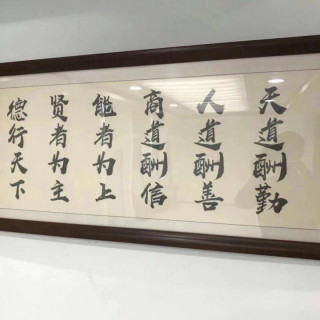 天道酬勤
人道酬善
商道酬信
能者为上
贤者为主
德行天下